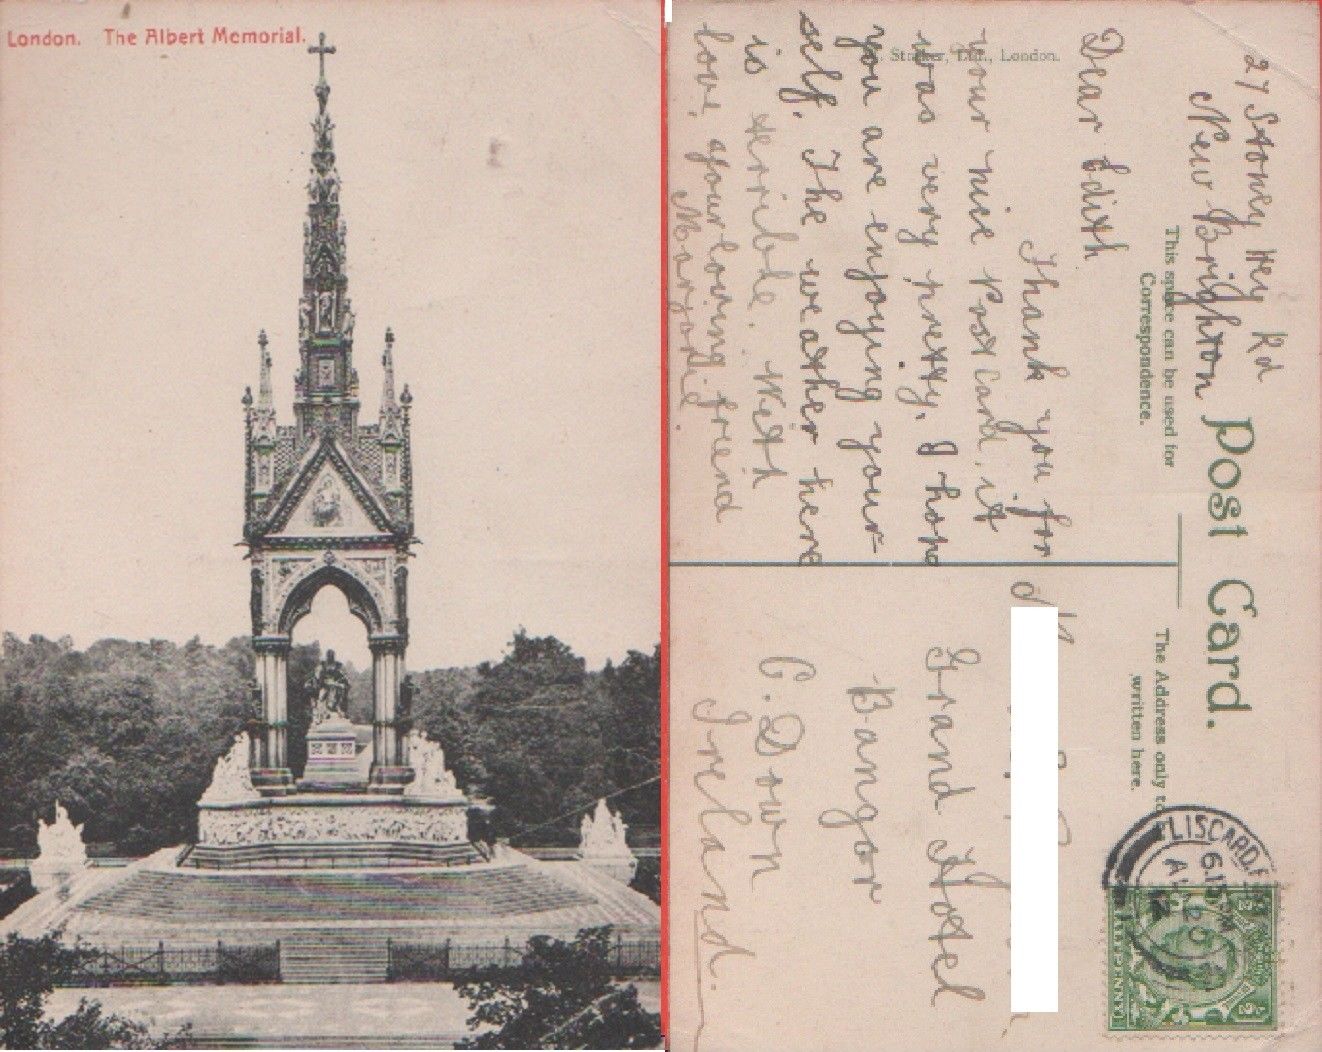 London. The Albert Memorial.
27 Stoney Hey Rd
New Brighton
Post Card.
This space can be used for
Correspondence.
The Address only to
written here.
Ltd., London.
Dear Edith
Thank you for
your nice Post Card, it
was very pretty. I hope
you are enjoying your-
self. The weather here
is terrible. With
love, your loving friend
Marjorie.
Grand Hotel
Bangor
C. Down
Ireland.
LISCARD
6.15 PM
12
HALFPENNY